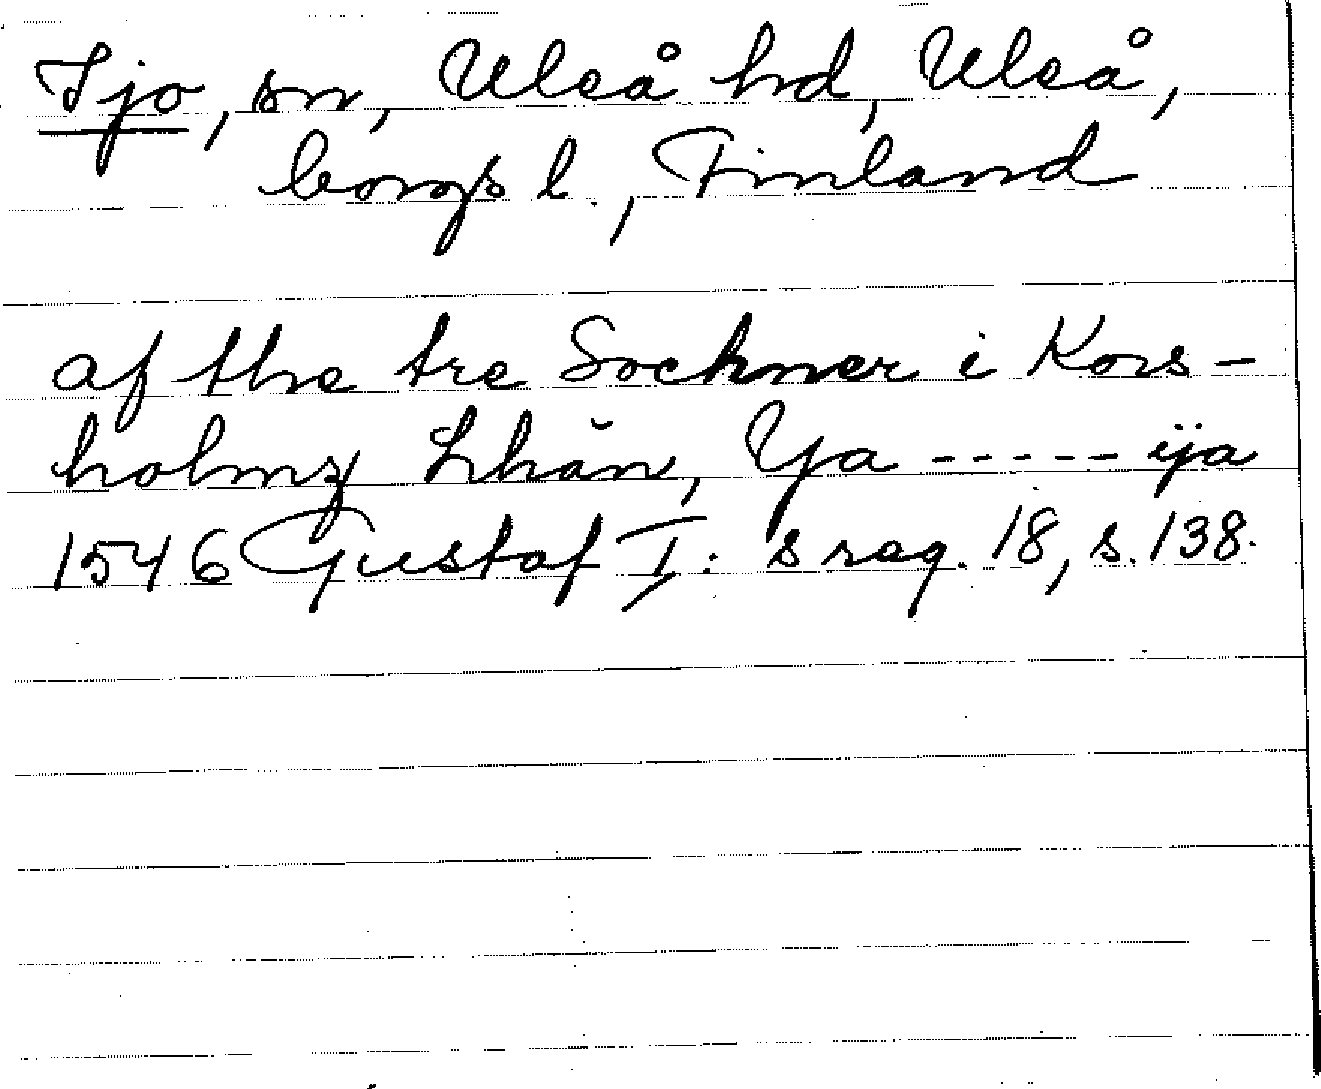 Ijo, sn, Uleå hd, Uleå,
borgs l., Finland
af the tre Sochner i Kors-
holmz Lhän, Ya ----- ija
1546 Gustaf I:s reg. 18, s. 138.